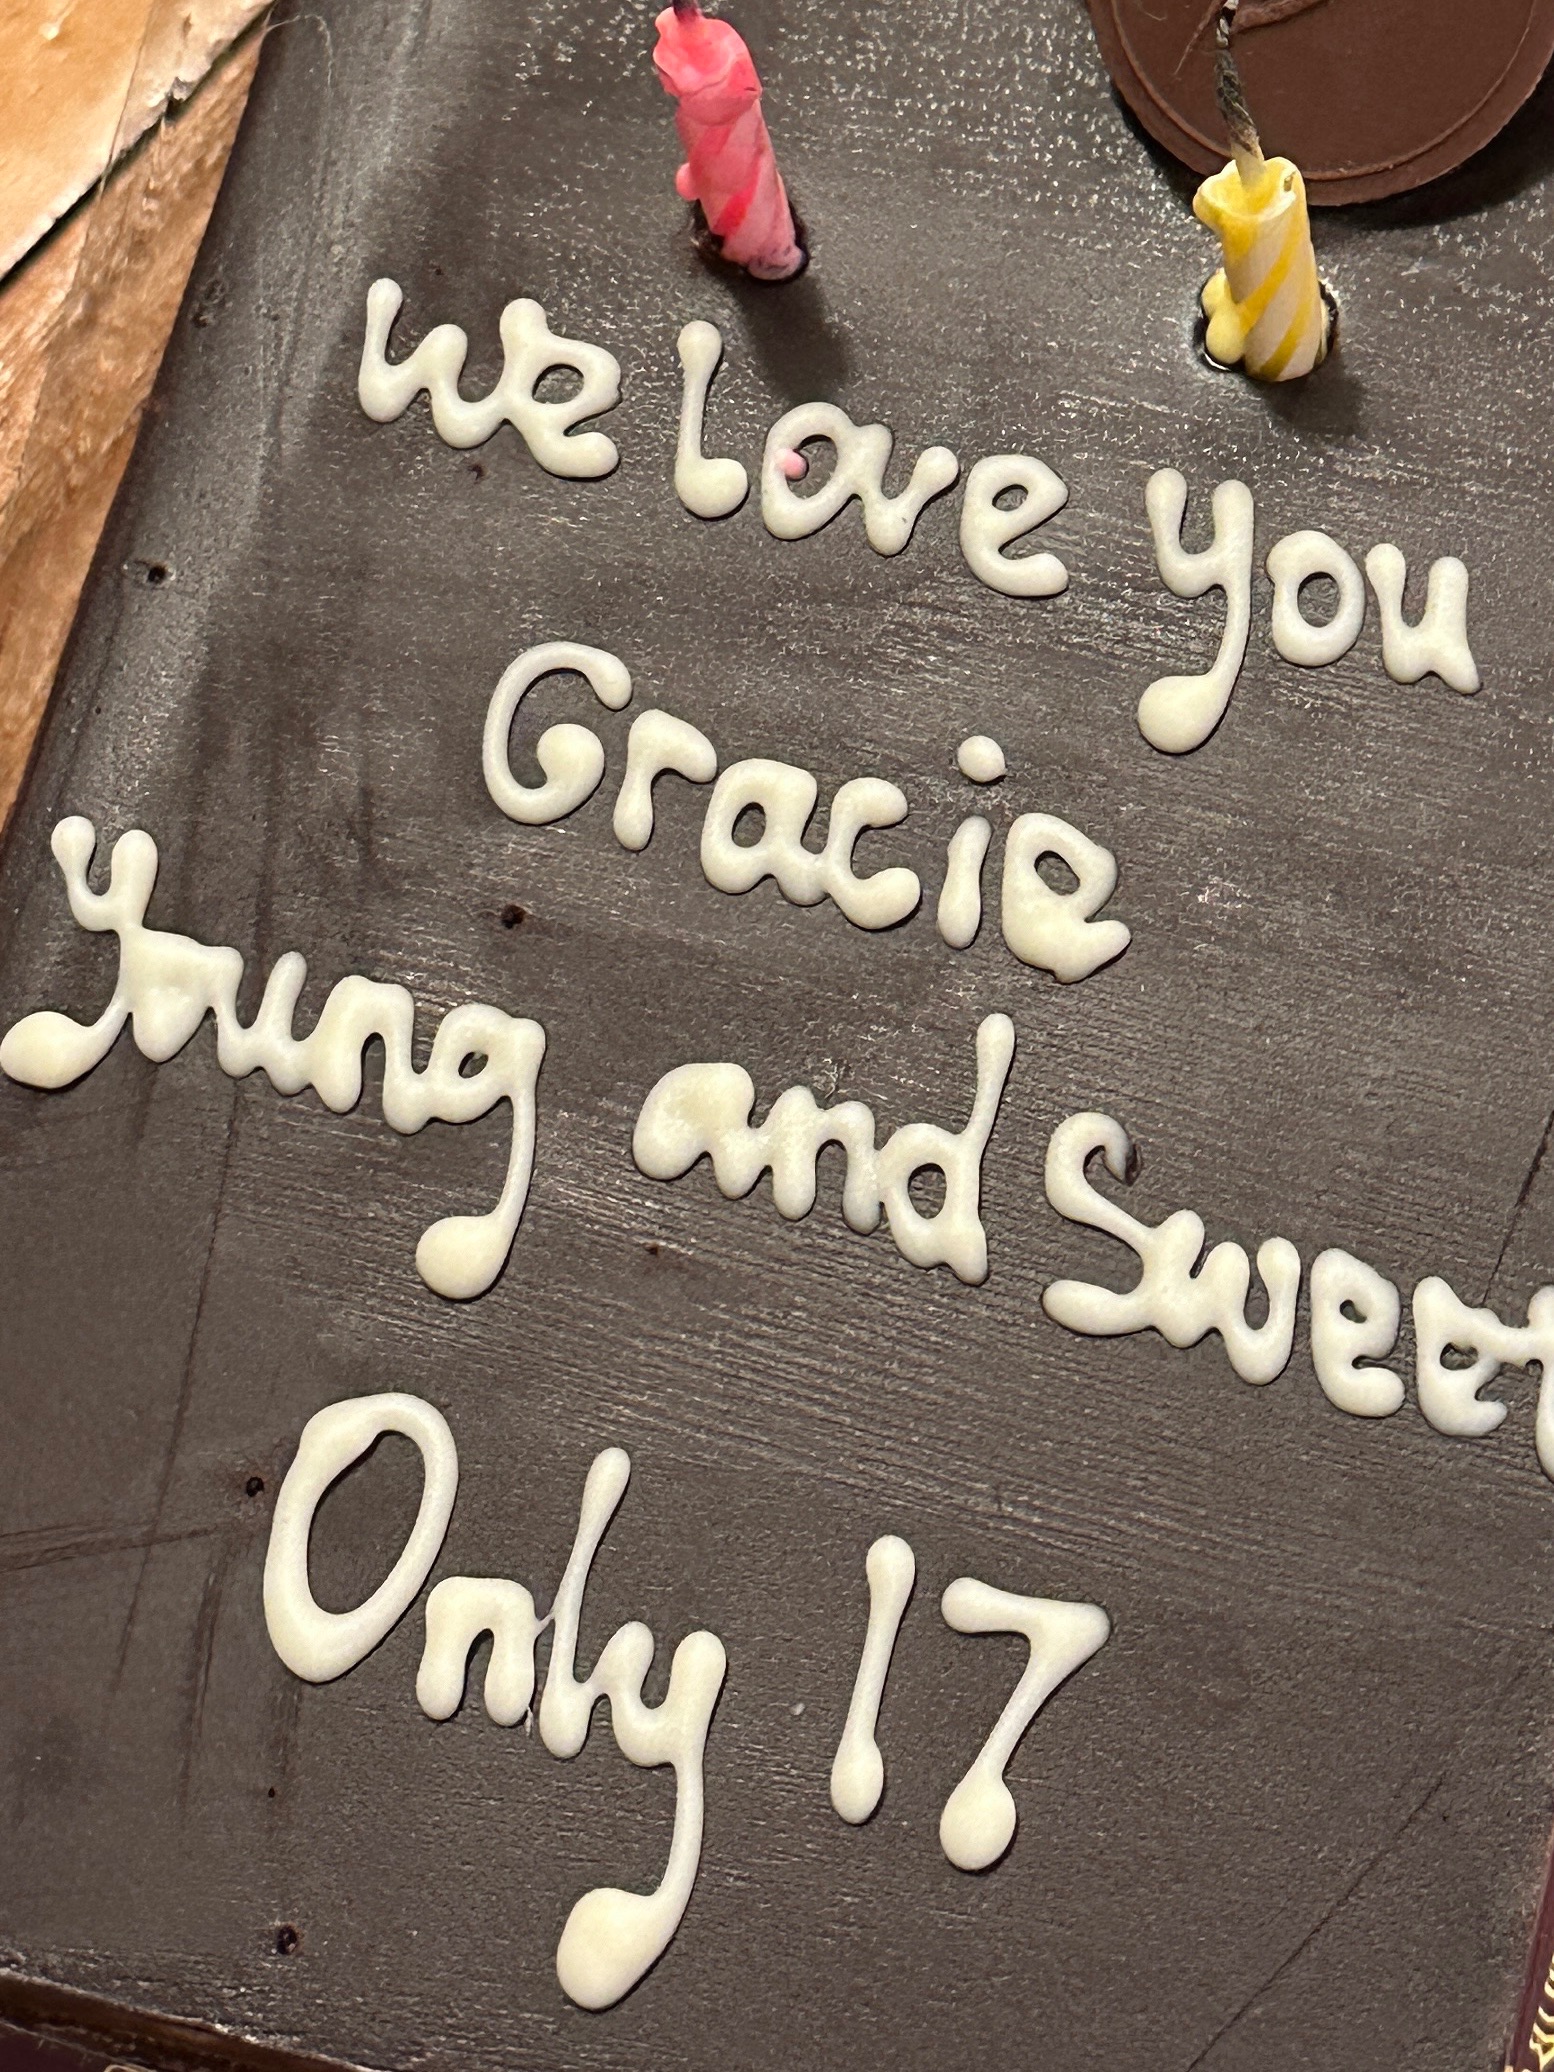 we love you
Gracie
Young and Sweet
Only 17